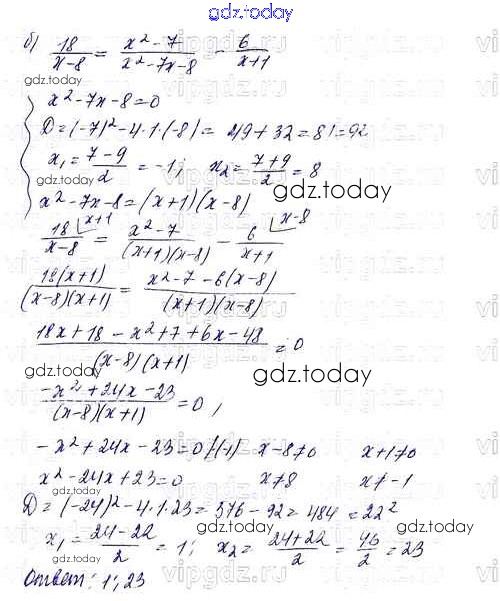 gdz.today
б) 18/(x-8) = (x²-7)/(x²-7x-8) - 6/(x+1)
gdz.today
x²-7x-8=0
D=(-7)²-4·1·(-8)= 49+32=81=9²
x₁= (7-9)/2 = -1; x₂= (7+9)/2 = 8
gdz.today
gdz.today
x²-7x-8=(x+1)(x-8)
18/(x-8) ⌊x+1 = (x²-7)/((x+1)(x-8)) - 6/(x+1) ⌊x-8
18(x+1)/((x-8)(x+1)) = (x²-7-6(x-8))/((x+1)(x-8))
(18x+18-x²+7+6x-48)/((x-8)(x+1)) = 0
gdz.today
gdz.today
(-x²+24x-23)/((x-8)(x+1)) = 0,
-x²+24x-23=0 |·(-1) x-8≠0 x+1≠0
x²-24x+23=0 x≠8 x≠-1
gdz.today
D=(-24)²-4·1·23=576-92=484=22²
x₁= (24-22)/2 = 1; x₂= (24+22)/2 = 46/2 = 23
gdz.today
gdz.today
Ответ: 1; 23